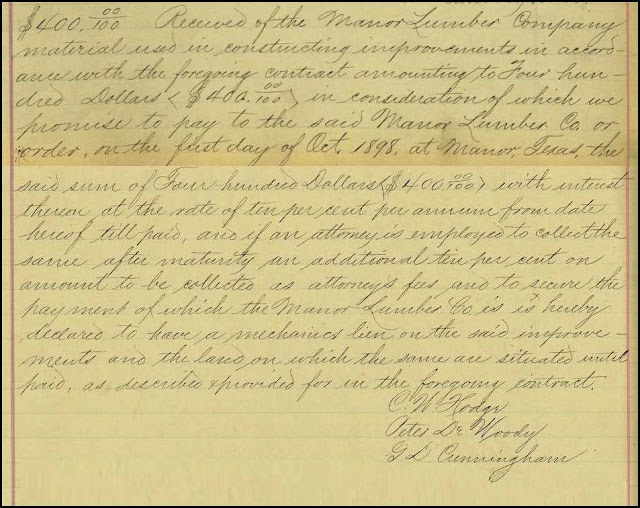 $400.00/100 Received of the Manor Lumber Company
material used in constructing improvements in accord-
ance with the foregoing contract amounting to Four hun-
dred Dollars ($400.00/100) in consideration of which we
promise to pay to the said Manor Lumber Co. or
order, on the first day of Oct. 1898, at Manor, Texas, the
said sum of Four hundred Dollars ($400.00/100) with interest
thereon at the rate of ten per cent per annum from date
hereof till paid, and if an attorney is employed to collect the
same after maturity an additional ten per cent on
amount to be collected as attorneys fees, and to secure the
payment of which the Manor Lumber Co. is is hereby
declared to have a mechanics lien on the said improve-
ments and the land on which the same are situated until
paid, as described & provided for in the foregoing contract.
C. W. Hodge
Peter De Woody
G. D. Cunningham